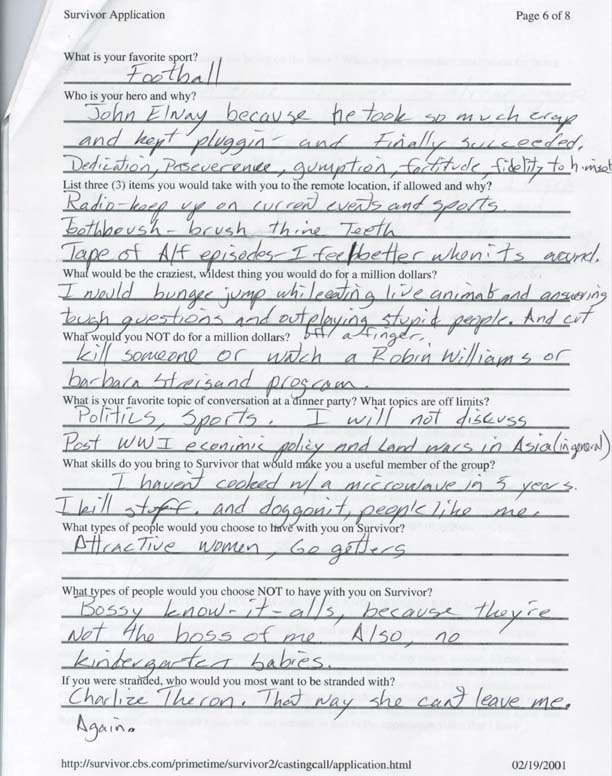 Survivor Application Page 6 of 8
What is your favorite sport?
Football
Who is your hero and why?
John Elway because he took so much crap
and kept pluggin' and finally succeeded.
Dedication, Perseverence, gumption, fortitude, fidelity to himself
List three (3) items you would take with you to the remote location, if allowed and why?
Radio - keep up on current events and sports.
toothbrush - brush thine Teeth
Tape of Alf episodes - I feel better when its around.
What would be the craziest, wildest thing you would do for a million dollars?
I would bungee jump while eating live animals and answering
tough questions and outplaying stupid people. And cut
off a finger.
What would you NOT do for a million dollars?
kill someone or watch a Robin Williams or
barbara streisand program.
What is your favorite topic of conversation at a dinner party? What topics are off limits?
Politics, Sports. I will not discuss
Post WWI econimic policy and Land wars in Asia (in general)
What skills do you bring to Survivor that would make you a useful member of the group?
I havent cooked w/ a microwave in 5 years.
I kill stuff. and doggonit, people like me.
What types of people would you choose to have with you on Survivor?
Attractive women, Go getters
What types of people would you choose NOT to have with you on Survivor?
Bossy know-it-alls, because they're
not the boss of me. Also, no
kindergarten babies.
If you were stranded, who would you most want to be stranded with?
Charlize Theron. That way she cant leave me.
Again.
http://survivor.cbs.com/primetime/survivor2/castingcall/application.html 02/19/2001